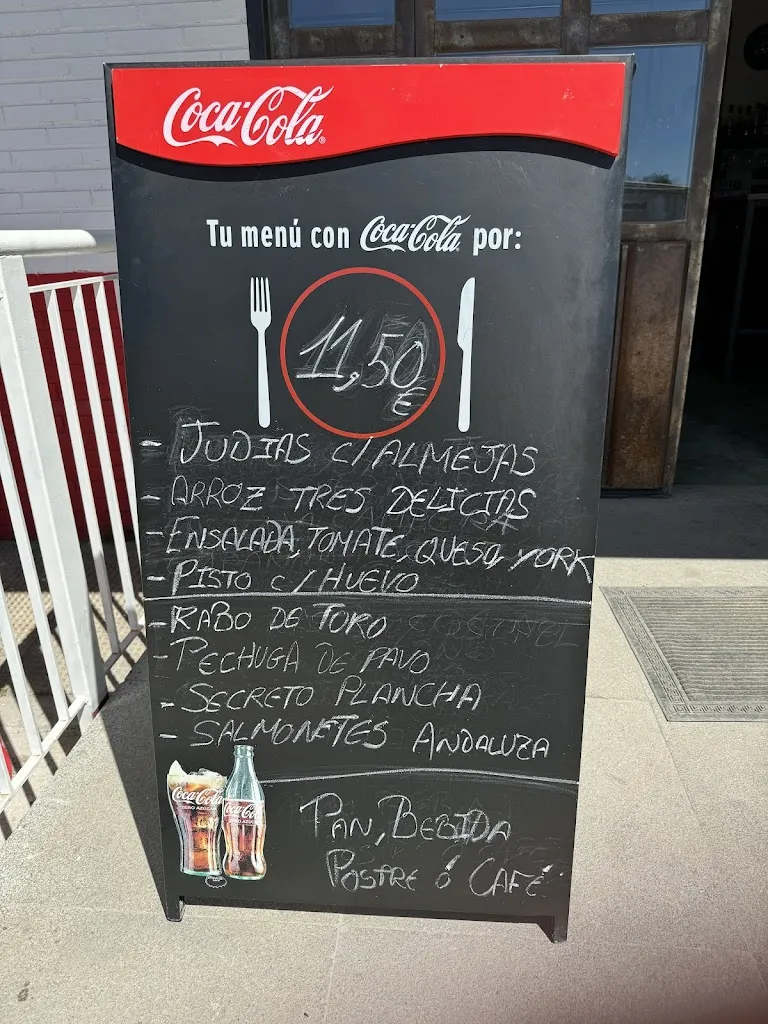 Coca-Cola
Tu menú con Coca-Cola por:
11,50
€
- JUDIAS C/ALMEJAS
- ARROZ TRES DELICIAS
- ENSALADA, TOMATE, QUESO, YORK
- PISTO C/HUEVO
- RABO DE TORO
- PECHUGA DE PAVO
- SECRETO PLANCHA
- SALMONETES ANDALUZA
Coca-Cola Coca-Cola
PAN, BEBIDA
POSTRE ó CAFÉ